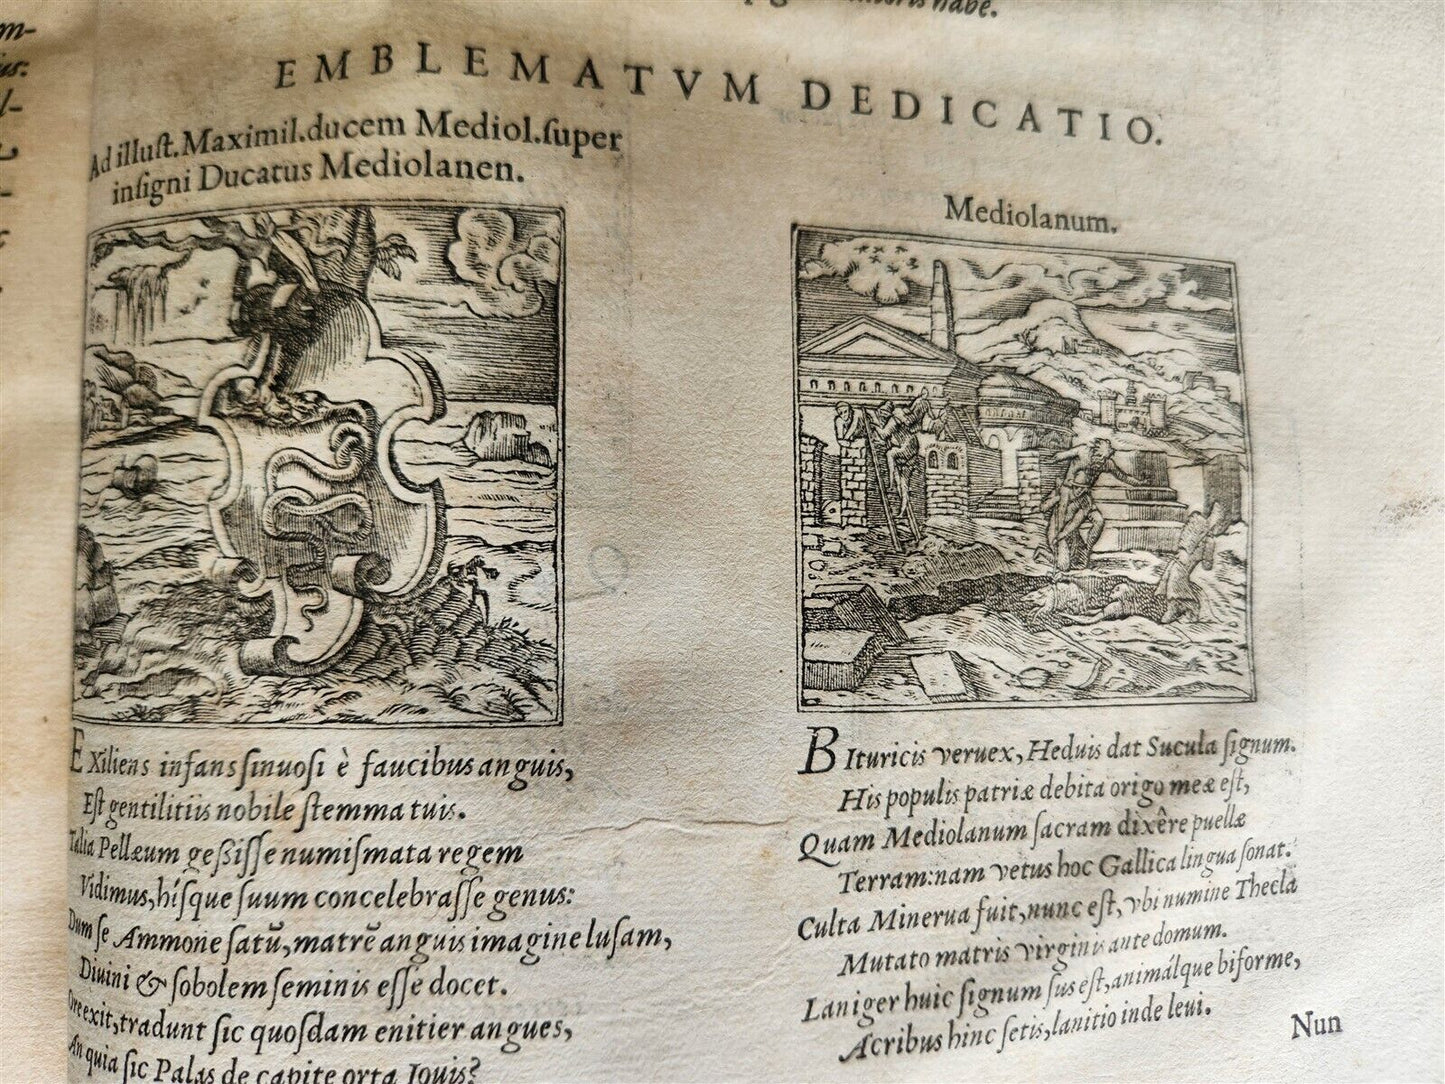 habe.
EMBLEMATVM DEDICATIO.
Ad illuſt. Maximil. ducem Mediol. ſuper
inſigni Ducatus Mediolanen.
EXiliens infans ſinuoſi è faucibus anguis,
Eſt gentilitiis nobile ſtemma tuis.
Talia Pellæum geßiſſe numiſmata regem
Vidimus, hîſque ſuum concelebraſſe genus:
Dum ſe Ammone ſatũ, matrẽ anguis imagine luſam,
Diuini & ſobolem ſeminis eſſe docet.
Ore exit, tradunt ſic quoſdam enitier angues,
An quia ſic Palas de capite orta Iouis?
Mediolanum.
BIturicis veruex, Heduis dat Sucula ſignum.
His populis patriæ debita origo meæ eſt,
Quam Mediolanum ſacram dixêre puellæ
Terram: nam vetus hoc Gallica lingua ſonat.
Culta Minerua fuit, nunc eſt, vbi numine Thecla
Mutato matris virginis ante domum.
Laniger huic ſignum ſus eſt, animálque biforme,
Acribus hinc ſetis, lanitio inde leui.
Nun